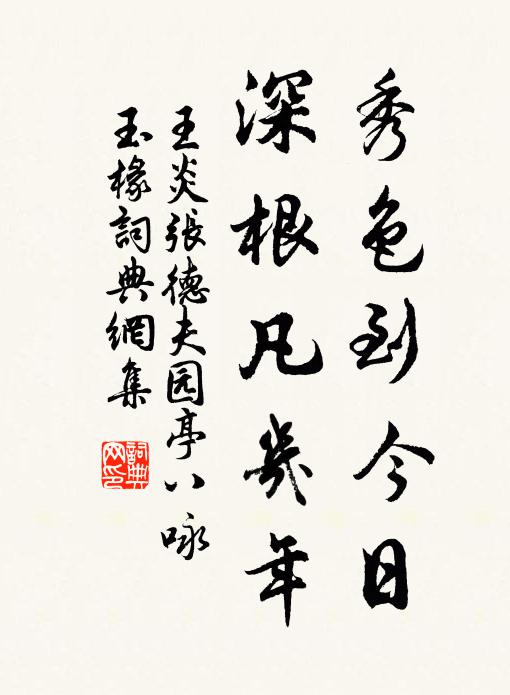 秀色到今日
深根凡幾年
王炎張德夫园亭八咏
玉椽詞典網集
詞典
网印